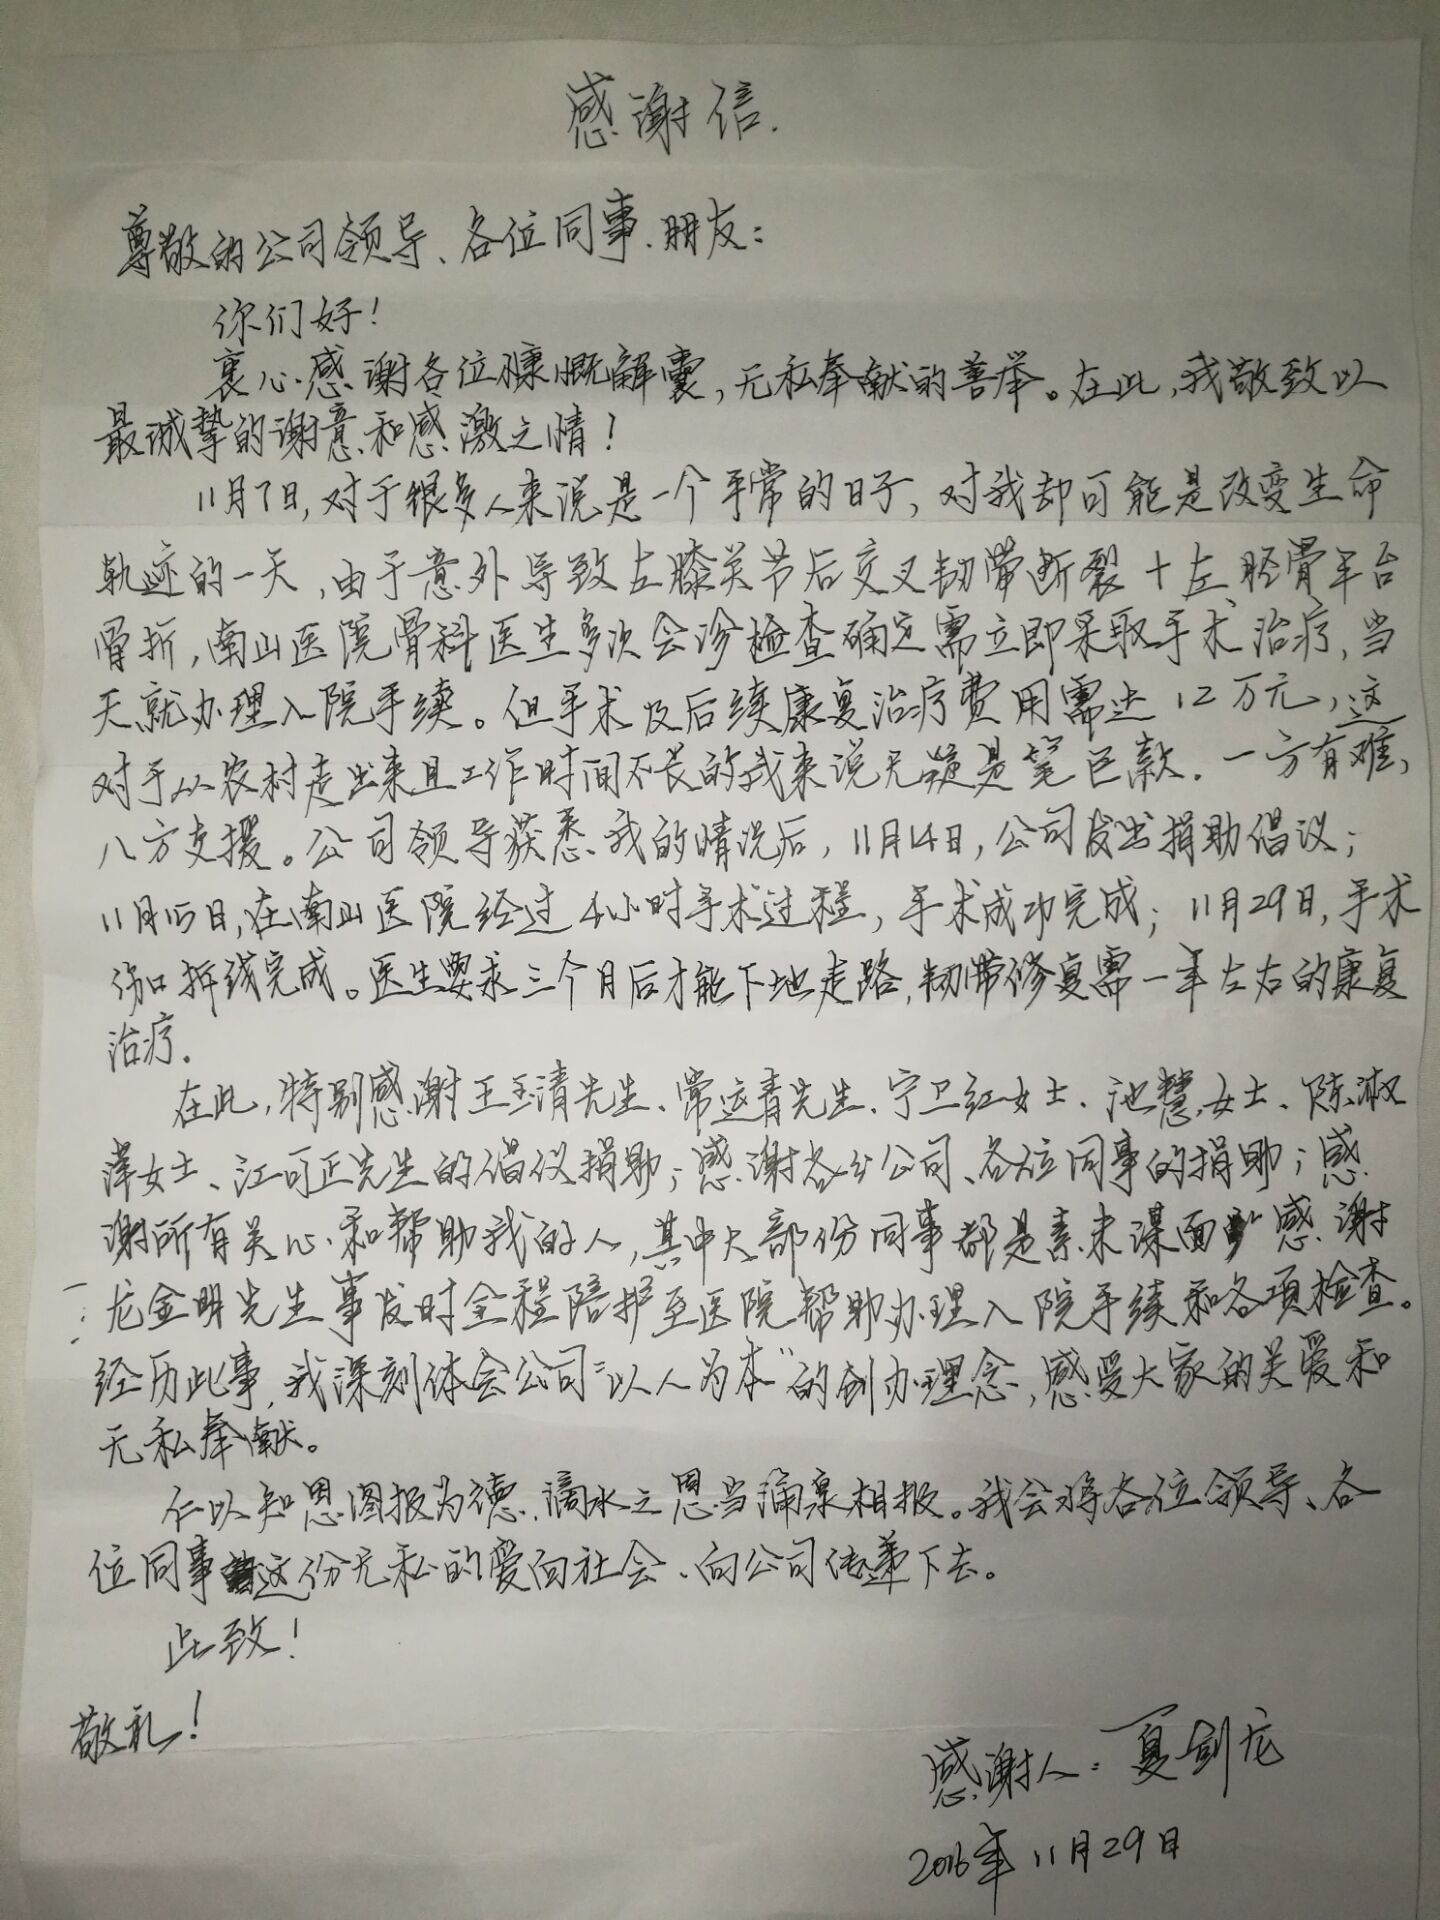 感谢信.
尊敬的公司领导、各位同事、朋友：
你们好！
衷心感谢各位慷慨解囊，无私奉献的善举。在此，我敬致以
最诚挚的谢意和感激之情！
11月7日，对于很多人来说是一个平常的日子，对我却可能是改变生命
轨迹的一天，由于意外导致左膝关节后交叉韧带断裂+左胫骨平台
骨折，南山医院骨科医生多次会诊检查确定需立即采取手术治疗，当
天就办理入院手续。但手术及后续康复治疗费用需达12万元，这
对于从农村走出来且工作时间不长的我来说无疑是笔巨款。一方有难、
八方支援。公司领导获悉我的情况后，11月14日，公司发出捐助倡议；
11月15日，在南山医院经过4小时手术过程，手术成功完成；11月29日，手术
伤口拆线完成。医生要求三个月后才能下地走路，韧带修复需一年左右的康复
治疗.
在此，特别感谢王玉清先生、常远青先生、宁卫红女士、池慧女士、陈淑
萍女士、江可正先生的倡议捐助；感谢各分公司、各位同事的捐助；感
谢所有关心和帮助我的人，其中大部份同事都是素未谋面 感谢
龙金明先生事发时全程陪护至医院帮助办理入院手续和各项检查。
经历此事，我深刻体会公司“以人为本”的创办理念，感受大家的关爱和
无私奉献。
仁以知恩图报为德，滴水之恩当涌泉相报。我会将各位领导、各
位同事这份无私的爱向社会、向公司传递下去。
此致！
敬礼！
感谢人：夏剑龙
2016年11月29日